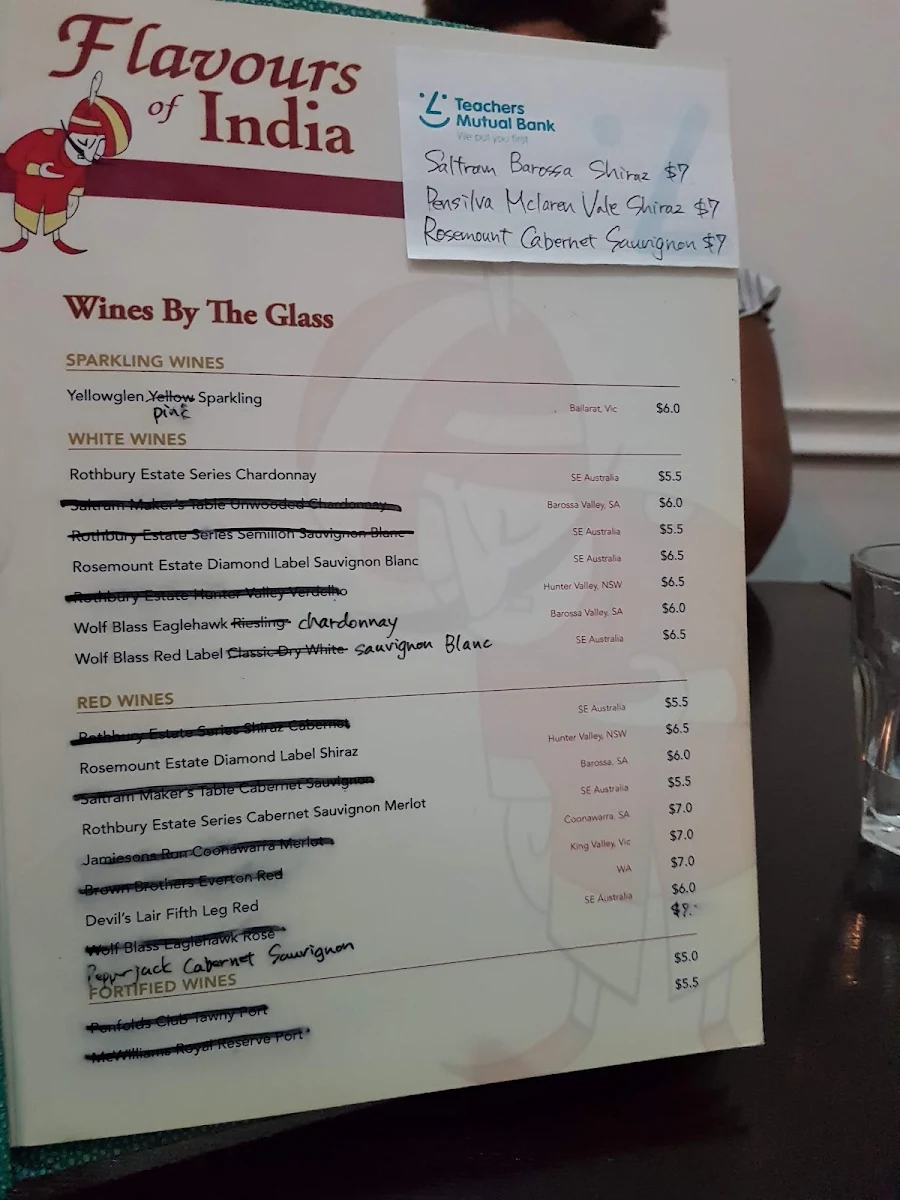 Flavours
of India
Teachers
Mutual Bank
We put you first
Saltram Barossa Shiraz $7
Pensilva Mclaren Vale Shiraz $7
Rosemount Cabernet Sauvignon $7
Wines By The Glass
SPARKLING WINES
Yellowglen Yellow Sparkling Ballarat, Vic $6.0
pink
WHITE WINES
Rothbury Estate Series Chardonnay SE Australia $5.5
Saltram Maker's Table Unwooded Chardonnay Barossa Valley, SA $6.0
Rothbury Estate Series Semillon Sauvignon Blanc SE Australia $5.5
Rosemount Estate Diamond Label Sauvignon Blanc SE Australia $6.5
Rothbury Estate Hunter Valley Verdelho Hunter Valley, NSW $6.5
Wolf Blass Eaglehawk Riesling chardonnay Barossa Valley, SA $6.0
Wolf Blass Red Label Classic Dry White sauvignon Blanc SE Australia $6.5
RED WINES
Rothbury Estate Series Shiraz Cabernet SE Australia $5.5
Rosemount Estate Diamond Label Shiraz Hunter Valley, NSW $6.5
Saltram Maker's Table Cabernet Sauvignon Barossa, SA $6.0
Rothbury Estate Series Cabernet Sauvignon Merlot SE Australia $5.5
Jamiesons Run Coonawarra Merlot Coonawarra, SA $7.0
Brown Brothers Everton Red King Valley, Vic $7.0
Devil's Lair Fifth Leg Red WA $7.0
Wolf Blass Eaglehawk Rosé SE Australia $6.0
Pepperjack Cabernet Sauvignon $9.
FORTIFIED WINES
Penfolds Club Tawny Port $5.0
McWilliams Royal Reserve Port $5.5